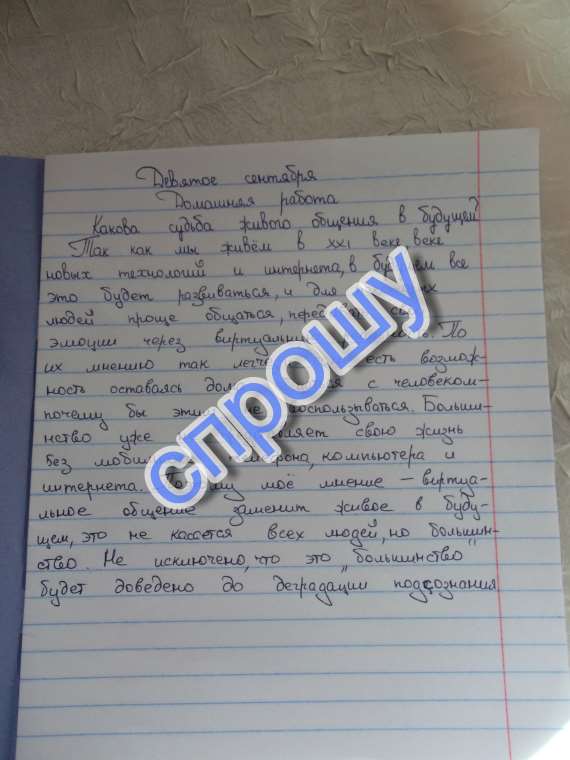 Девятое сентября
Домашняя работа
Какова судьба живого общения в будущем?
Так как мы живём в XXI веке, веке
новых технологий и интернета, в все
это будет развиваться, и для
людей проще общаться,
эмоции через По
их мнению так есть возмож-
ность оставаясь с человеком-
почему бы воспользываться. Больши-
нство уже свою жизнь
без компьютера и
интернета. моё мнение - виртуа-
льное общение заменит живое в буду-
щем, это не касается всех людей, но большин-
ство. Не исключено, что это „большинство"
будет доведено до деградации подсознания
спрошу